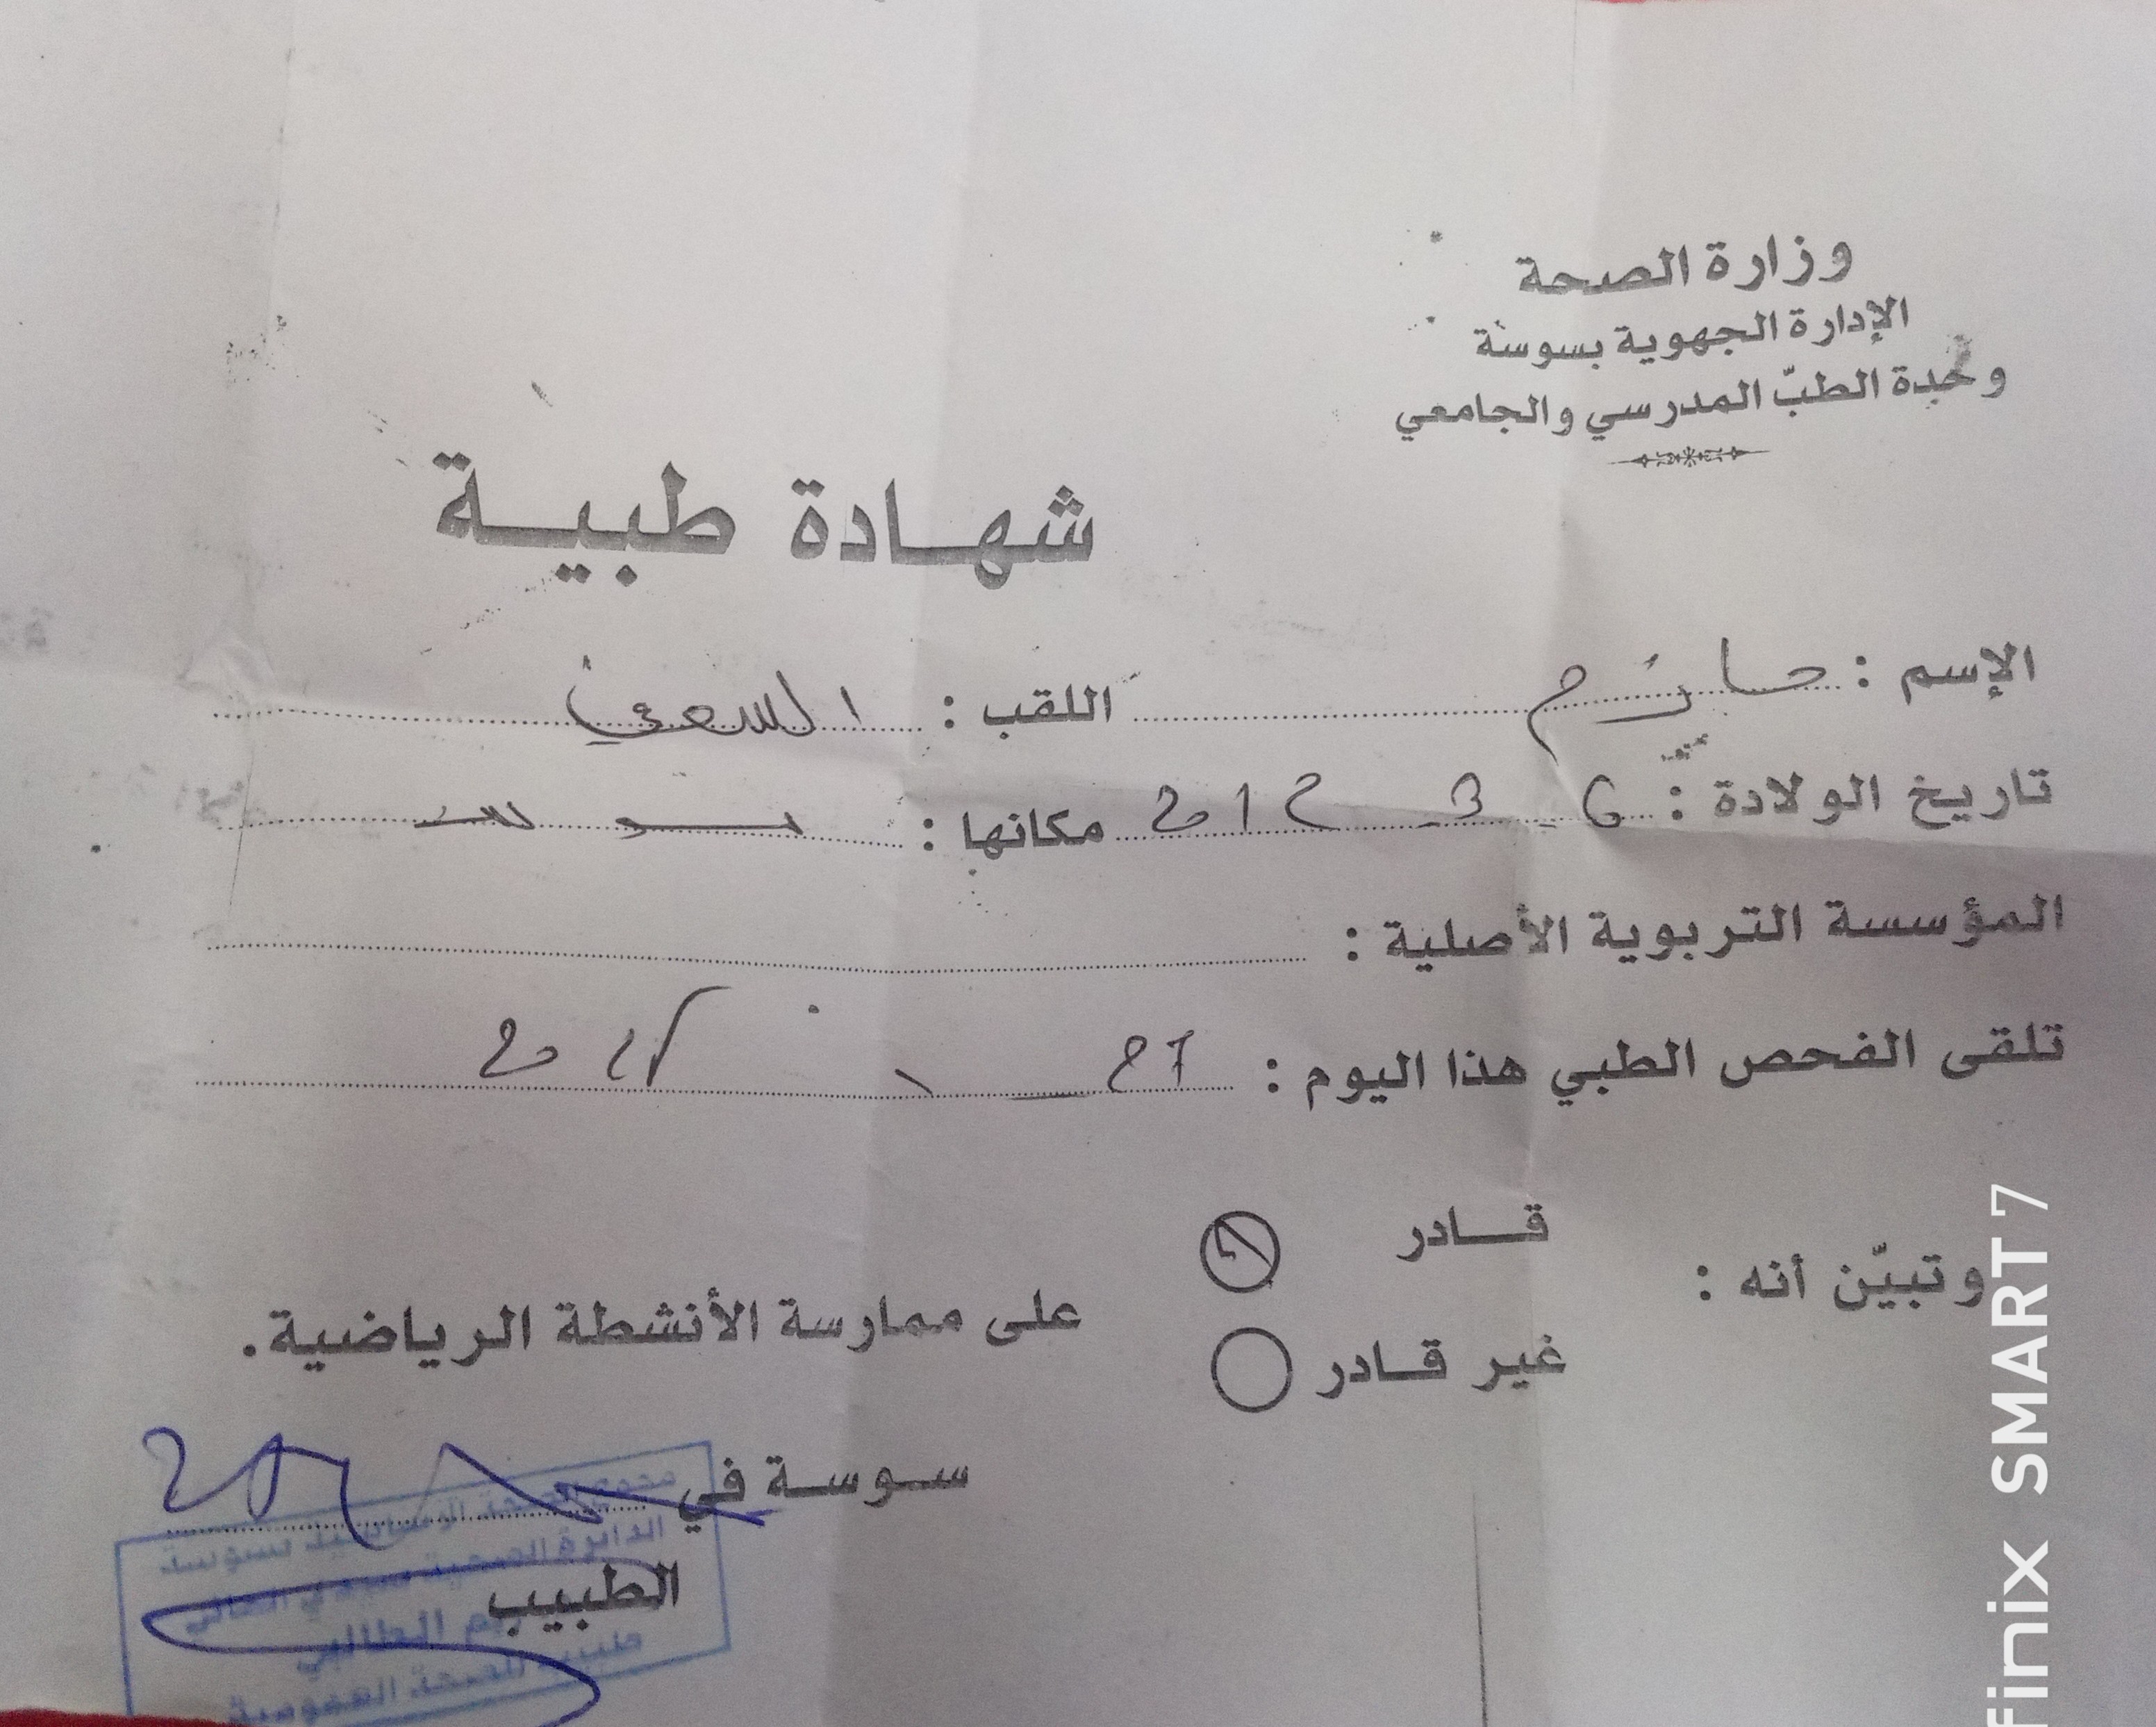 وزارة الصحة
الإدارة الجهوية بسوسة
وحدة الطبّ المدرسي والجامعي
شهادة طبية
الإسم : حازم اللقب :
تاريخ الولادة : 6 - 3 - 2012 مكانها :
المؤسسة التربوية الأصلية :
تلقى الفحص الطبي هذا اليوم :
وتبيّن أنه :
قادر
غير قادر
على ممارسة الأنشطة الرياضية.
سوسة في
الطبيب
الدائرة الصحية
طبيب الصحة العمومية
finix SMART 7